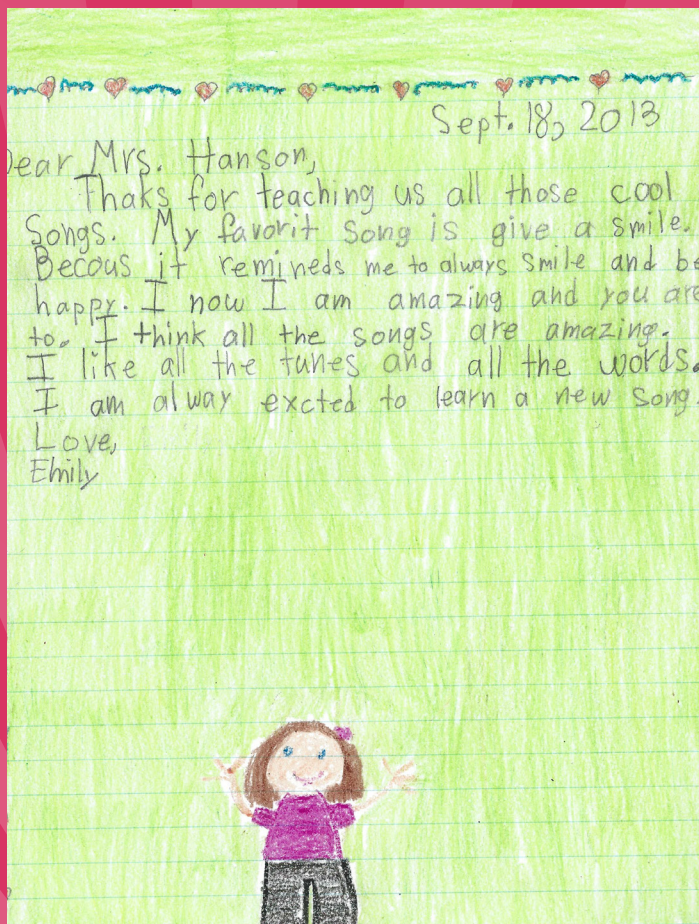 Sept. 18, 2013
Dear Mrs. Hanson,
Thaks for teaching us all those cool
Songs. My favorit Song is give a smile.
Becous it remineds me to always smile and be
happy. I now I am amazing and you are
to. I think all the songs are amazing.
I like all the tunes and all the words.
I am alway excted to learn a new song.
Love,
Emily